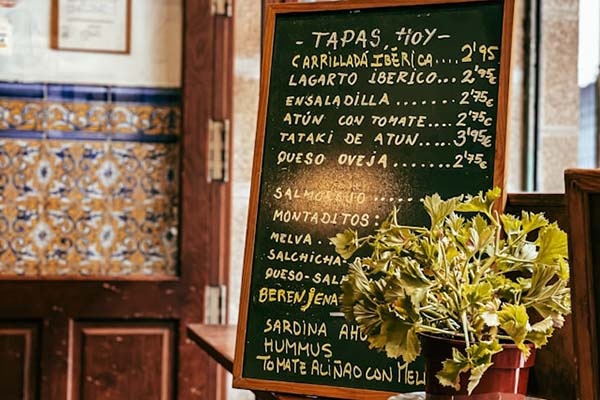 - TAPAS, HOY -
CARRILLADA IBÉRICA.... 2'95
LAGARTO IBERICO... 2'95€
ENSALADILLA ....... 2'75€
ATÚN CON TOMATE.... 2'75€
TATAKI DE ATUN..... 3'95€
QUESO OVEJA ....... 2'75€
SALMOREJO
MONTADITOS:
MELVA .
SALCHICHA-
QUESO-
BERENJENA
SARDINA
HUMMUS
TOMATE ALIÑAO CON